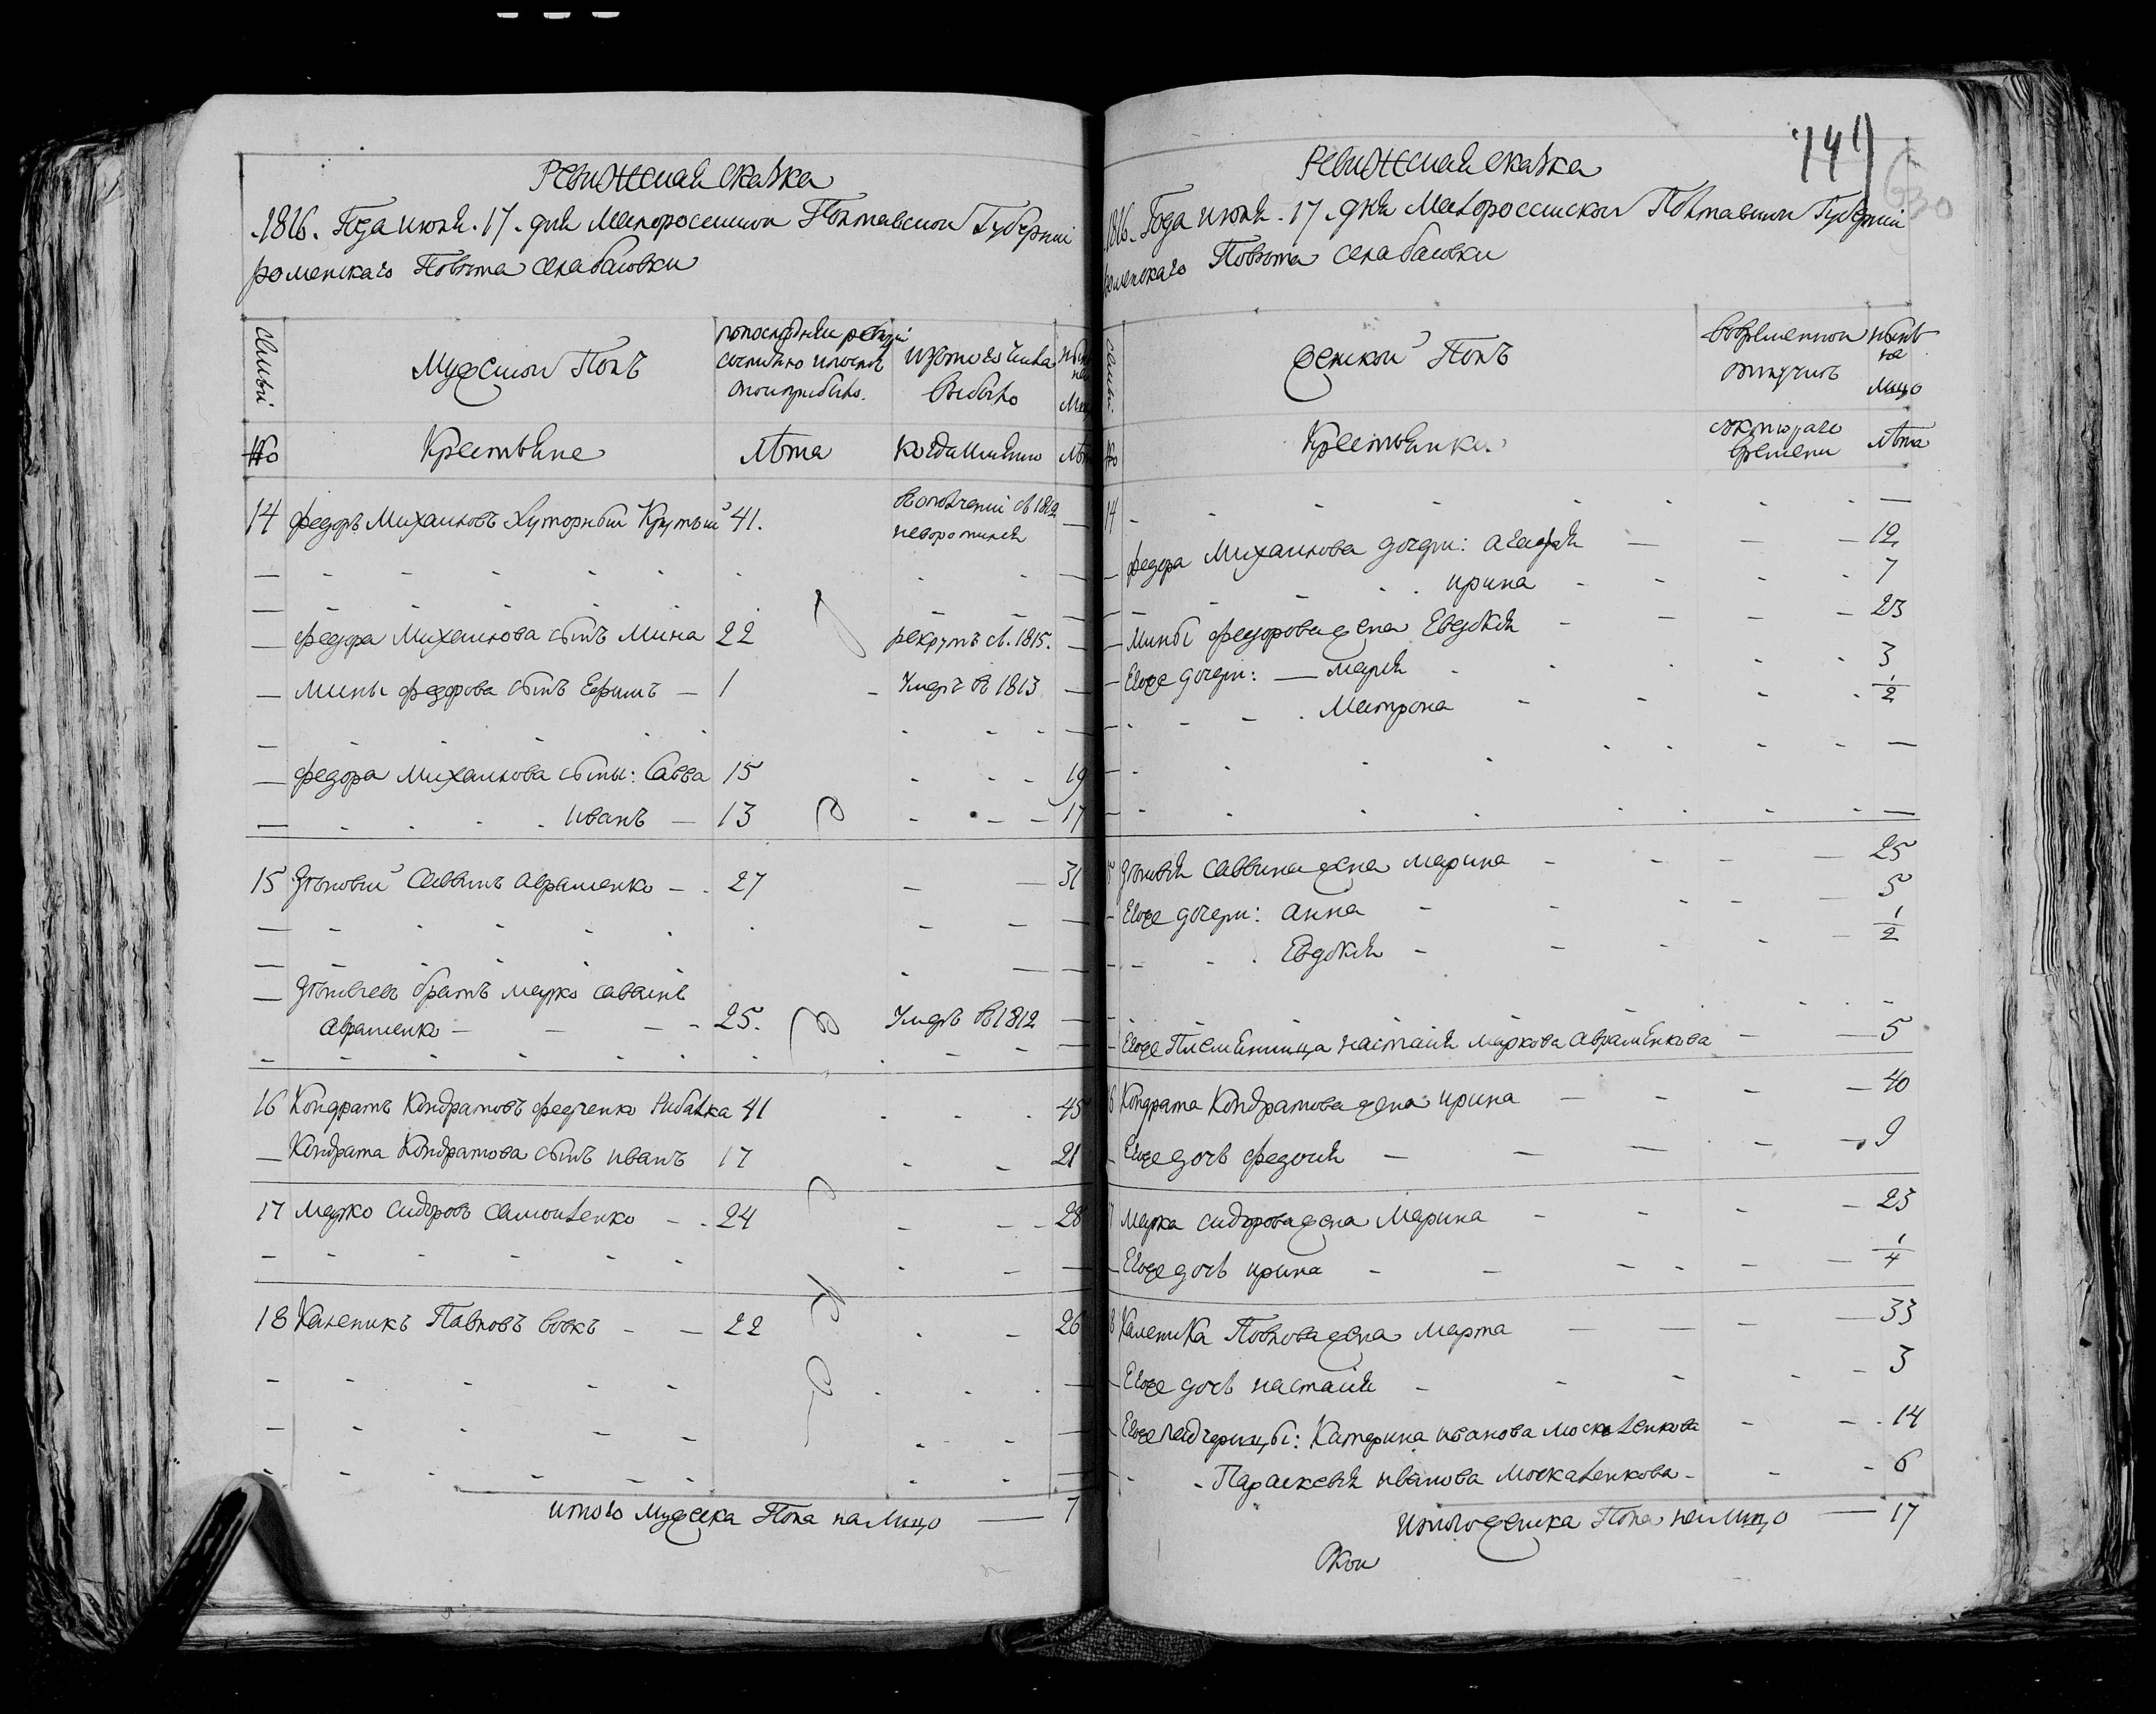 Ревижская сказка
1816. Года июня. 17. дня Малороссийской Полтавской Губернии
роменскаго Повета села басовки
Семьи
Мужской Полъ
по последней ревизии состояло и после того прибыло.
изтого числа выбыло
ныне на лицо
№
Крестьяне
Лета
Когда именно
Лета
14 федоръ Михайловъ Хуторный Крутый 41. в ополчении с 1812 невороти́лся
федора Михайлова сынъ Мина 22 рекрутъ с. 1815.
Мины федорова сынъ Ефимъ — 1 Умеръ в 1813
федора Михайлова сыны: Савва 15 19
иванъ — 13 17
15 Зѣновий Саввинъ Авраменко — 27 31
Зѣновиевъ братъ марко саввинъ
Авраменко — 25. Умеръ в 1812
16 Кондратъ Кондратовъ федченко Рибалка 41 45
Кондрата Кондратова сынъ иванъ 17 21
17 Марко Сидоровъ Самойленко 24 28
18 Каленикъ Павловъ вовкъ 22 26
итого мужеска Пола на лицо — 7
141
630
Ревижская сказка
1816. Года июня. 17. дня Малороссийской Полтавской Губернии
роменскаго Повета села басовки
Семьи
женской Полъ
во временной отлучке
ныне на лицо
№
Крестьянки.
с котораго времени
Лета
14
федора Михайлова дочери: агафия 12
ирина 7
Мины федорова жена Евдокия 23
Егоже дочери: — мария 3
Матрона 1/2
15 Зѣновия саввина жена марина 25
Егоже дочери: анна 5
Евдокия 1/2
Егоже Племянница настасия маркова авраменкова 5
16 Кондрата Кондратова жена ирина 40
Егоже дочь федосия 9
17 Марка сидорова жена Марина 23
Егоже дочь ирина 1/4
18 Каленика Павлова жена марта 33
Егоже дочь настасия 3
Егоже падчерицы: Катерина иванова москаленкова 14
Параскевия иванова москаленкова 6
Итого женска Пола на лицо — 17